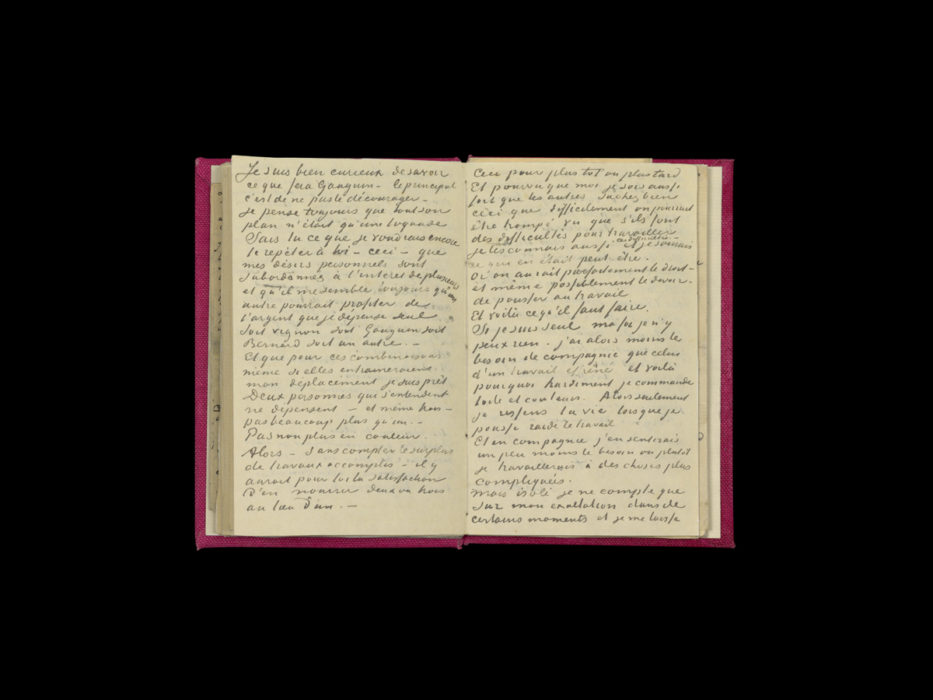 Je suis bien curieux de savoir
ce que fera Gauguin – le principal
c'est de ne pas le décourager –
je pense toujours que tout son
plan n'était qu'une toquade
Sais tu ce que je voudrais encore
te repéter à toi – ceci – que
mes désirs personnels sont
subordonnés à l'intérêt de plusieurs
et qu'il me semble toujours qu'un
autre pourrait profiter de
l'argent que je dépense seul.
Soit Vignon soit Gauguin soit
Bernard soit un autre. –
Et que pour ces combinaisons
même si elles entraineraient
mon déplacement je suis prêt
Deux personnes qui s'entendent
ne depensent – et même trois –
pas beaucoup plus qu'un. –
Pas non plus en couleur.
Alors – sans compter le surplus
de travaux accomplis – il y
aurait pour toi la satisfaction
d'en nourrir deux ou trois
au lieu d'un. –
Ceci pour plus tot ou plus tard
Et pourvu que moi je sois aussi
fort que les autres Saches bien
ceci que difficilement on pourrait
être trompé vu que s'ils font
des difficultés pour travailler
je les connais aussi ces difficultés – et je saurais
ce qui en était peut être.
Or on aurait parfaitement le droit –
et même possiblement le devoir –
de pousser au travail
Et voilà ce qu'il faut faire.
Si je suis seul ma foi je n'y
peux rien. j'ai alors moins le
besoin de compagnie que celui
d'un travail effréné et voilà
pourquoi hardiment je commande
toile et couleurs. Alors seulement
je ressens la vie lorsque je
pousse raide le travail
Et en compagnie j'en sentirais
un peu moins le besoin ou plutôt
je travaillerais à des choses plus
compliquées.
Mais isolé je ne compte que
sur mon exaltation dans de
certains moments et je me laisse